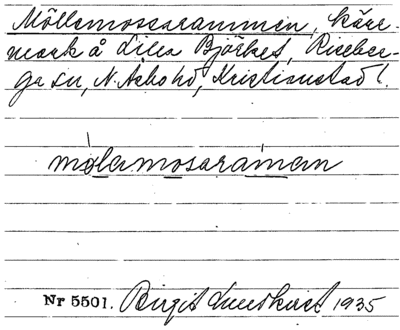 Möllemosarammen, kärr-
mark å Lilla Björket, Riseber-
ga sn, N. Åsbo hd, Kristianstad l.
mölamosaraman
Nr 5501. Birgit Lundkvist 1935